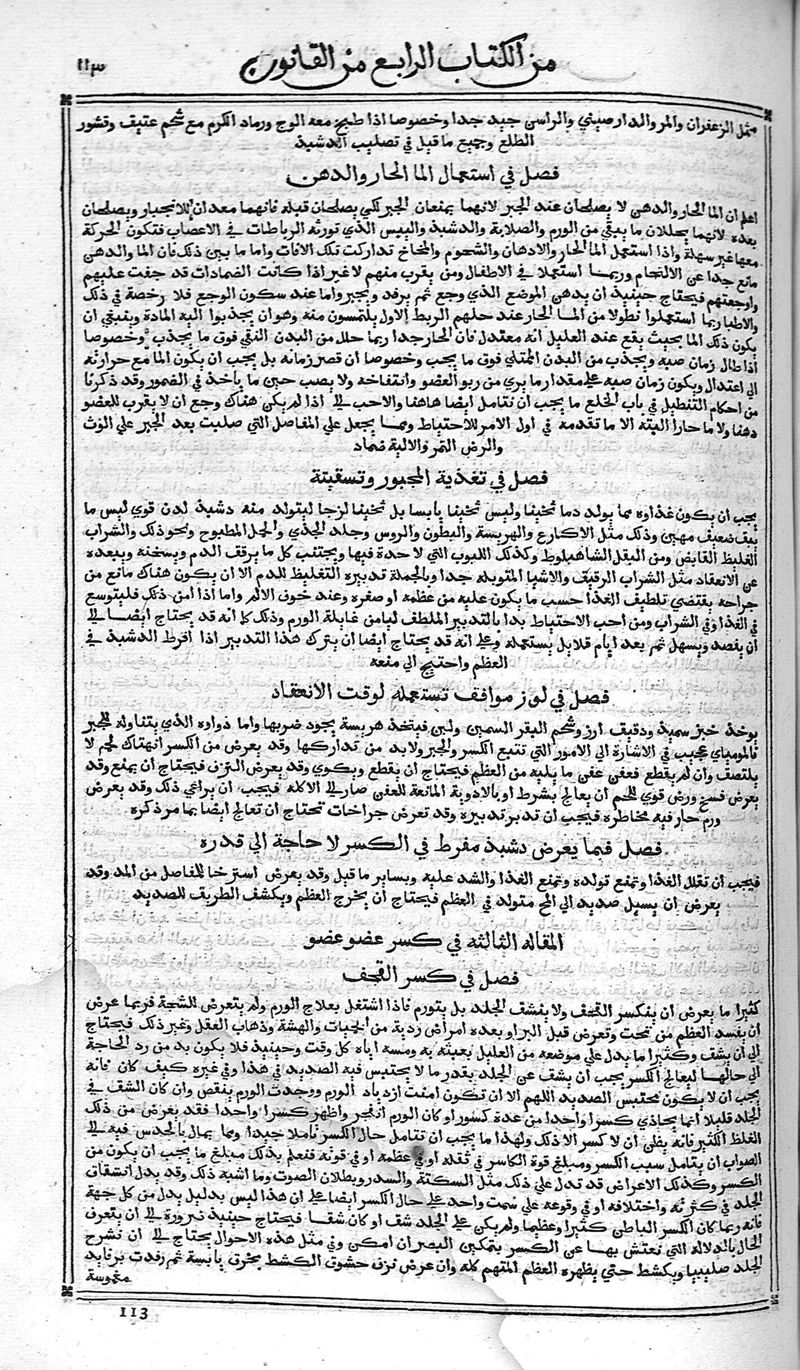 ١١٣ من الكتاب الرابع من القانون
مثل الزعفران والمر والدارصيني والراسن جيد جدا وخصوصا اذا طبخ معه الوج ورماد الكرم مع شحم عتيق وقشور
الطلع وجميع ما قيل في تصليب الدشبذ
فصل في استعمال الما الحار والدهن
اعلم ان الما الحار والدهن لا يصلحان عند الجبر لانهما يمنعان الجبر لكن يصلحان قبله فانهما معدان للانجبار ويصلحان
بعده لانهما يحللان ما يبقي من الورم والصلابة والدشبذ واليبس الذي تورثه الرباطات في الاعصاب فتكون الحركة
معها غير سهلة واذا استعمل الما الحار والادهان والشحوم والمخاخ تداركت تلك الافات واما ما بين ذلك فان الما والدهن
مانع جدا عن الالتحام وربما استعملا في الاطفال ومن يقرب منهم لا غير اذا كانت الضمادات قد جفت عليهم
واوجعتهم فيحتاج حينيذ ان يدهن الموضع الذي وجع ثم يرفد ويجبر واما عند سكون الوجع فلا رخصة في ذلك
والاطبا ربما استعملوا نطولا من الما الحار عند حلهم الربط الاول يلتمسون منه وهو ان يجذبوا اليه المادة وينبغي ان
يكون ذلك الما بحيث يقع عند العليل انه معتدل فان الحار جدا ربما حلل من البدن النقي فوق ما يجذب وخصوصا
اذا طال زمان صبه ويجذب من البدن الممتلي فوق ما يجب وخصوصا ان قصر زمانه بل يجب ان يكون الما مع حرارته
الي اعتدال ويكون زمان صبه علي مقدار ما يري من ربو العضو وانتفاخه ولا يصب حين ما ياخذ في الضمور وقد ذكرنا
من احكام التنطيل في باب الخلع ما يجب ان تتامل ايضا هاهنا والاحب لي اذا لم يكن هناك وجع ان لا يقرب للعضو
دهنا ولا ما حارا البتة الا ما تقدمه في اول الامر للاحتياط ومما يجعل علي المفاصل التي صلبت بعد الجبر علي الوث
والرض التمر والالية ضماد
فصل في تغذية المجبور وتسقيته
يجب ان يكون غذاوه مما يولد دما ثخينا وليس ثخينا يابسا بل ثخينا لزجا ليتولد منه دشبذ لدن قوي ليس ما
ضعيف مهين وذلك مثل الاكارع والهريسة والبطون والروس وجلد الجدي والحمل المطبوخ ونحو ذلك والشراب
الغليظ القابض ومن البقل الشاهبلوط وكذلك اللبوب التي لا حدة فيها ويجتنب كل ما يرقق الدم ويسخنه ويبعده
عن الانعقاد مثل الشراب الرقيق والاشيا المتوبله جدا وبالجملة تدبيره التغليظ للدم الا ان يكون هناك مانع من
جراحه يقتضي تلطيف الغذا حسب ما يكون عليه من عظمه او صغره وعند خوف الالم واما اذا امن ذلك فليتوسع
في الغذا وفي الشراب ومن احب الاحتياط بدا بالتدبير الملطف ليامن غايلة الورم وذلك كما انه قد يحتاج ايضا الي
ان يفصد ويسهل ثم بعد ايام قلايل يستعمله وعلي انه قد يحتاج ايضا ان يترك هذا التدبير اذا افرط الدشبذ في
العظم واحتيج الي منعه
فصل في لون موافق تستعمله لوقت الانعقاد
يوخذ خبز سميذ ودقيق ارز وشحم البقر السمين ولبن فيتخذ هريسة يجود ضربها واما دواوه الذي يتناوله للجبر
فالمومياي عجيب في الاشارة الي الامور التي تتبع الكسر والجبر ولا بد من تداركها وقد يعرض من الكسر انهتاك لحم لا
يلتصق وان لم يقطع فعفن عفن ما يليه من العظم فيحتاج ان يقطع ويكوي وقد يعرض النزف فيحتاج ان يمنع وقد
يعرض فسخ ورض قوي للحم ان يعالج بشرط او بالادوية المانعة للعفن صار الي الاكله فيجب ان يراعي ذلك وقد يعرض
ورم حار فيه مخاطره فيجب ان تدبر تدبيره وقد تعرض جراحات تحتاج ان تعالج ايضا بما مر ذكره
فصل فيما يعرض دشبذ مفرط في الكسر لا حاجة الي قدره
فيجب ان تقلل الغذا وتمنع تولده وتمنع الغذا والشد عليه وبساير ما قيل وقد يعرض استرخا للفاصل من المد وقد
يعرض ان يسيل صديد الي المخ متولد في العظم فيحتاج ان يخرج العظم ويكشف الطريق للصديد
المقاله الثالثه في كسر عضو عضو
فصل في كسر القحف
كثيرا ما يعرض ان ينكسر القحف ولا ينشق الجلد بل يتورم فاذا اشتغل بعلاج الورم ولم يتعرض للشجة فربما عرض
ان يفسد العظم من تحت وتعرض قبل البر او بعده امراض ردية من الحميات والرعشة وذهاب العقل وغير ذلك فيحتاج
الي ان يشق وكثيرا ما يدل علي موضعه من العليل بعبثه به ومسه اياه كل وقت وحينيذ فلا يكون بد من رد الحاجة
الي حالها ليعالج الكسر يجب ان يشق عن الجلد بقدر ما لا يحتبس فيه الصديد في هذا وفي غيره كيف كان فانه
يجب ان لا يكون محتبس الصديد اللهم الا ان تكون امنت ازدياد الورم ووجدت الورم ينقص وان كان الشق في
الجلد قليلا انما يحاذي كسرا واحدا من عدة كسور او كان الورم انفجر واظهر كسرا واحدا فقد يعرض من ذلك
الغلط الكثير فانه يظن ان لا كسر الا ذلك ولهذا ما يجب ان تتامل حال الكسر تاملا جيدا ومما يمال بالحدس فيه الي
الصواب ان يتامل سبب الكسر ومبلغ قوة الكاسر في ثقله او في عظمه او في قوته فتعلم بذلك مبلغ ما يجب ان يكون من
الكسر وكذلك الاعراض قد تدل علي ذلك مثل السكتة والسدر وبطلان الصوت وما اشبه ذلك وقد يدل انشقاق
الجلد في كثرته واختلافه او في وقوعه علي سمت واحد علي حال الكسر ايضا علي ان هذا ليس بدليل يدل من كل جهة
فانه ربما كان الكسر الباطن كثيرا وعظيما ولم يكن علي الجلد شق او كان شقا فيحتاج حينيذ ضرورة الي ان يتعرف
الحال بالدلالة التي تعتش بها عن الكسر بتمكين البصر ان امكن وفي مثل هذه الاحوال يحتاج الي ان تشرح
الجلد صليبيا ويكشط حتي يظهره العظم المتهم كله وان عرض نزف حشوت الكشط بخرق يابسة ثم رفدت برفايد
مغموسة
113